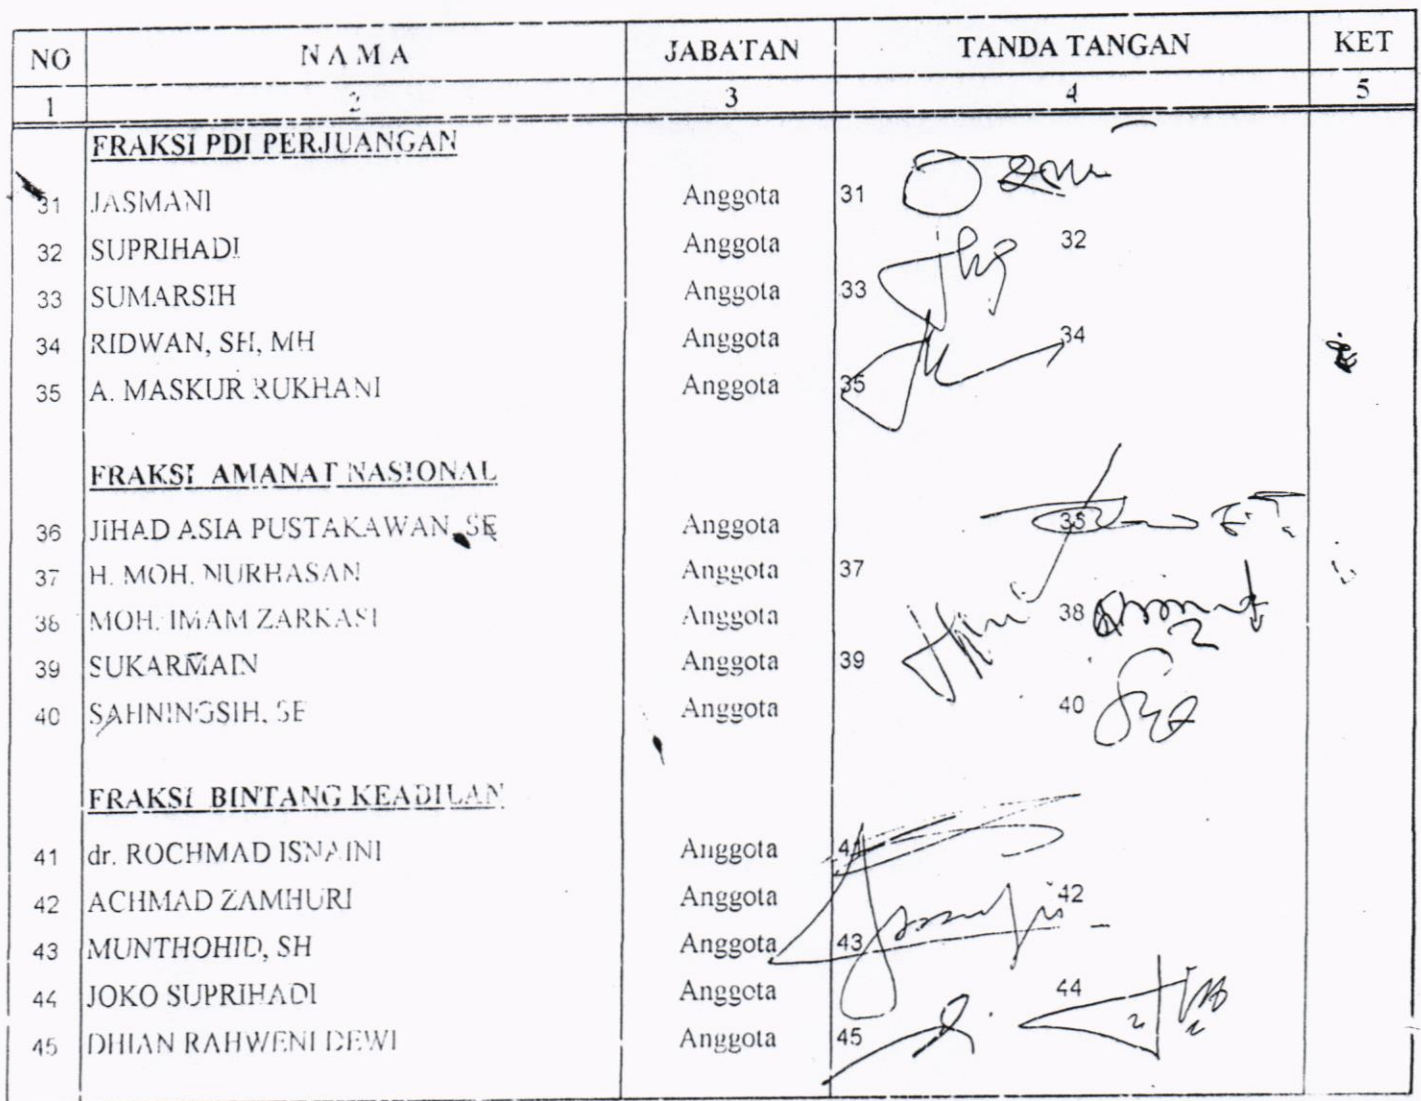 NO NAMA JABATAN TANDA TANGAN KET
1 2 3 4 5
FRAKSI PDI PERJUANGAN
31 JASMANI Anggota 31
32 SUPRIHADI Anggota 32
33 SUMARSIH Anggota 33
34 RIDWAN, SH, MH Anggota 34
35 A. MASKUR RUKHANI Anggota 35
FRAKSI AMANAT NASIONAL
36 JIHAD ASIA PUSTAKAWAN, SE Anggota
37 H. MOH. NURHASAN Anggota 37
38 MOH. IMAM ZARKASI Anggota 38
39 SUKARMAIN Anggota 39
40 SAHNINGSIH, SE Anggota 40
FRAKSI BINTANG KEADILAN
41 dr. ROCHMAD ISNAINI Anggota 41
42 ACHMAD ZAMHURI Anggota 42
43 MUNTHOHID, SH Anggota 43
44 JOKO SUPRIHADI Anggota 44
45 DHIAN RAHWENI DEWI Anggota 45